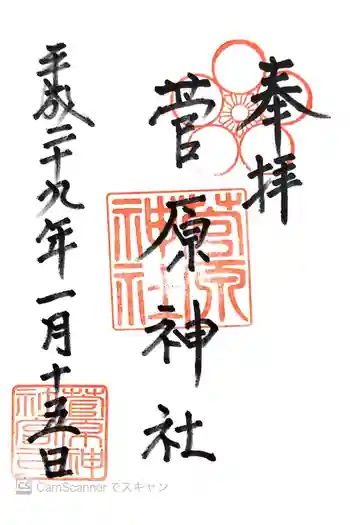 奉拝
菅原神社
平成二十九年一月十五日
菅原神社
CS CamScanner でスキャン